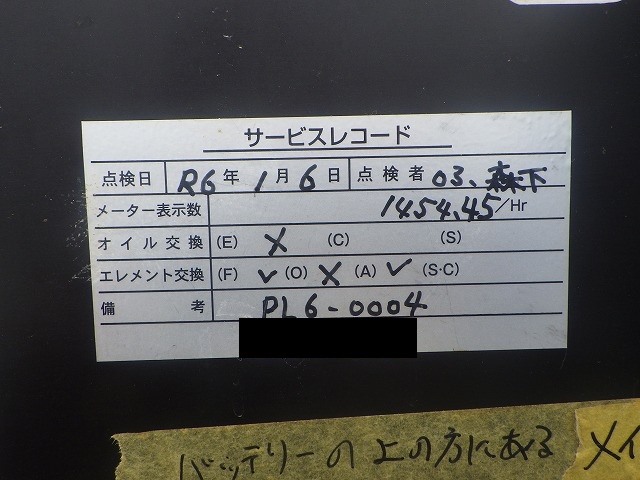 サービスレコード
点検日 R6年 1月 6日 点検者 03、森下
メーター表示数 1454.45/Hr
オイル交換 (E) ✗ (C) (S)
エレメント交換 (F) ✓ (O) ✗ (A) ✓ (S·C)
備考 PL6-0004
バッテリーの上の方にある メイ